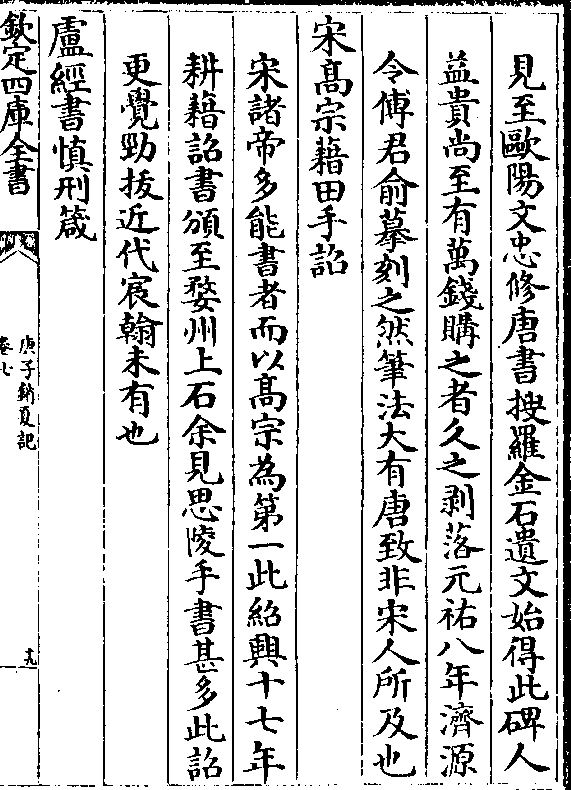 見至歐陽文忠修唐書搜羅金石遺文始得此碑人
益貴尚至有萬錢購之者久之剥落元祐八年濟源
令傅君俞摹刻之然筆法大有唐致非宋人所及也
宋髙宗藉田手詔
宋諸帝多能書者而以髙宗為第一此紹興十七年
耕藉詔書頒至婺州上石余見思陵手書甚多此詔
更覺勁拔近代宸翰未有也
盧經書慎刑箴
欽定四庫全書
庚子銷夏記
卷七
十九